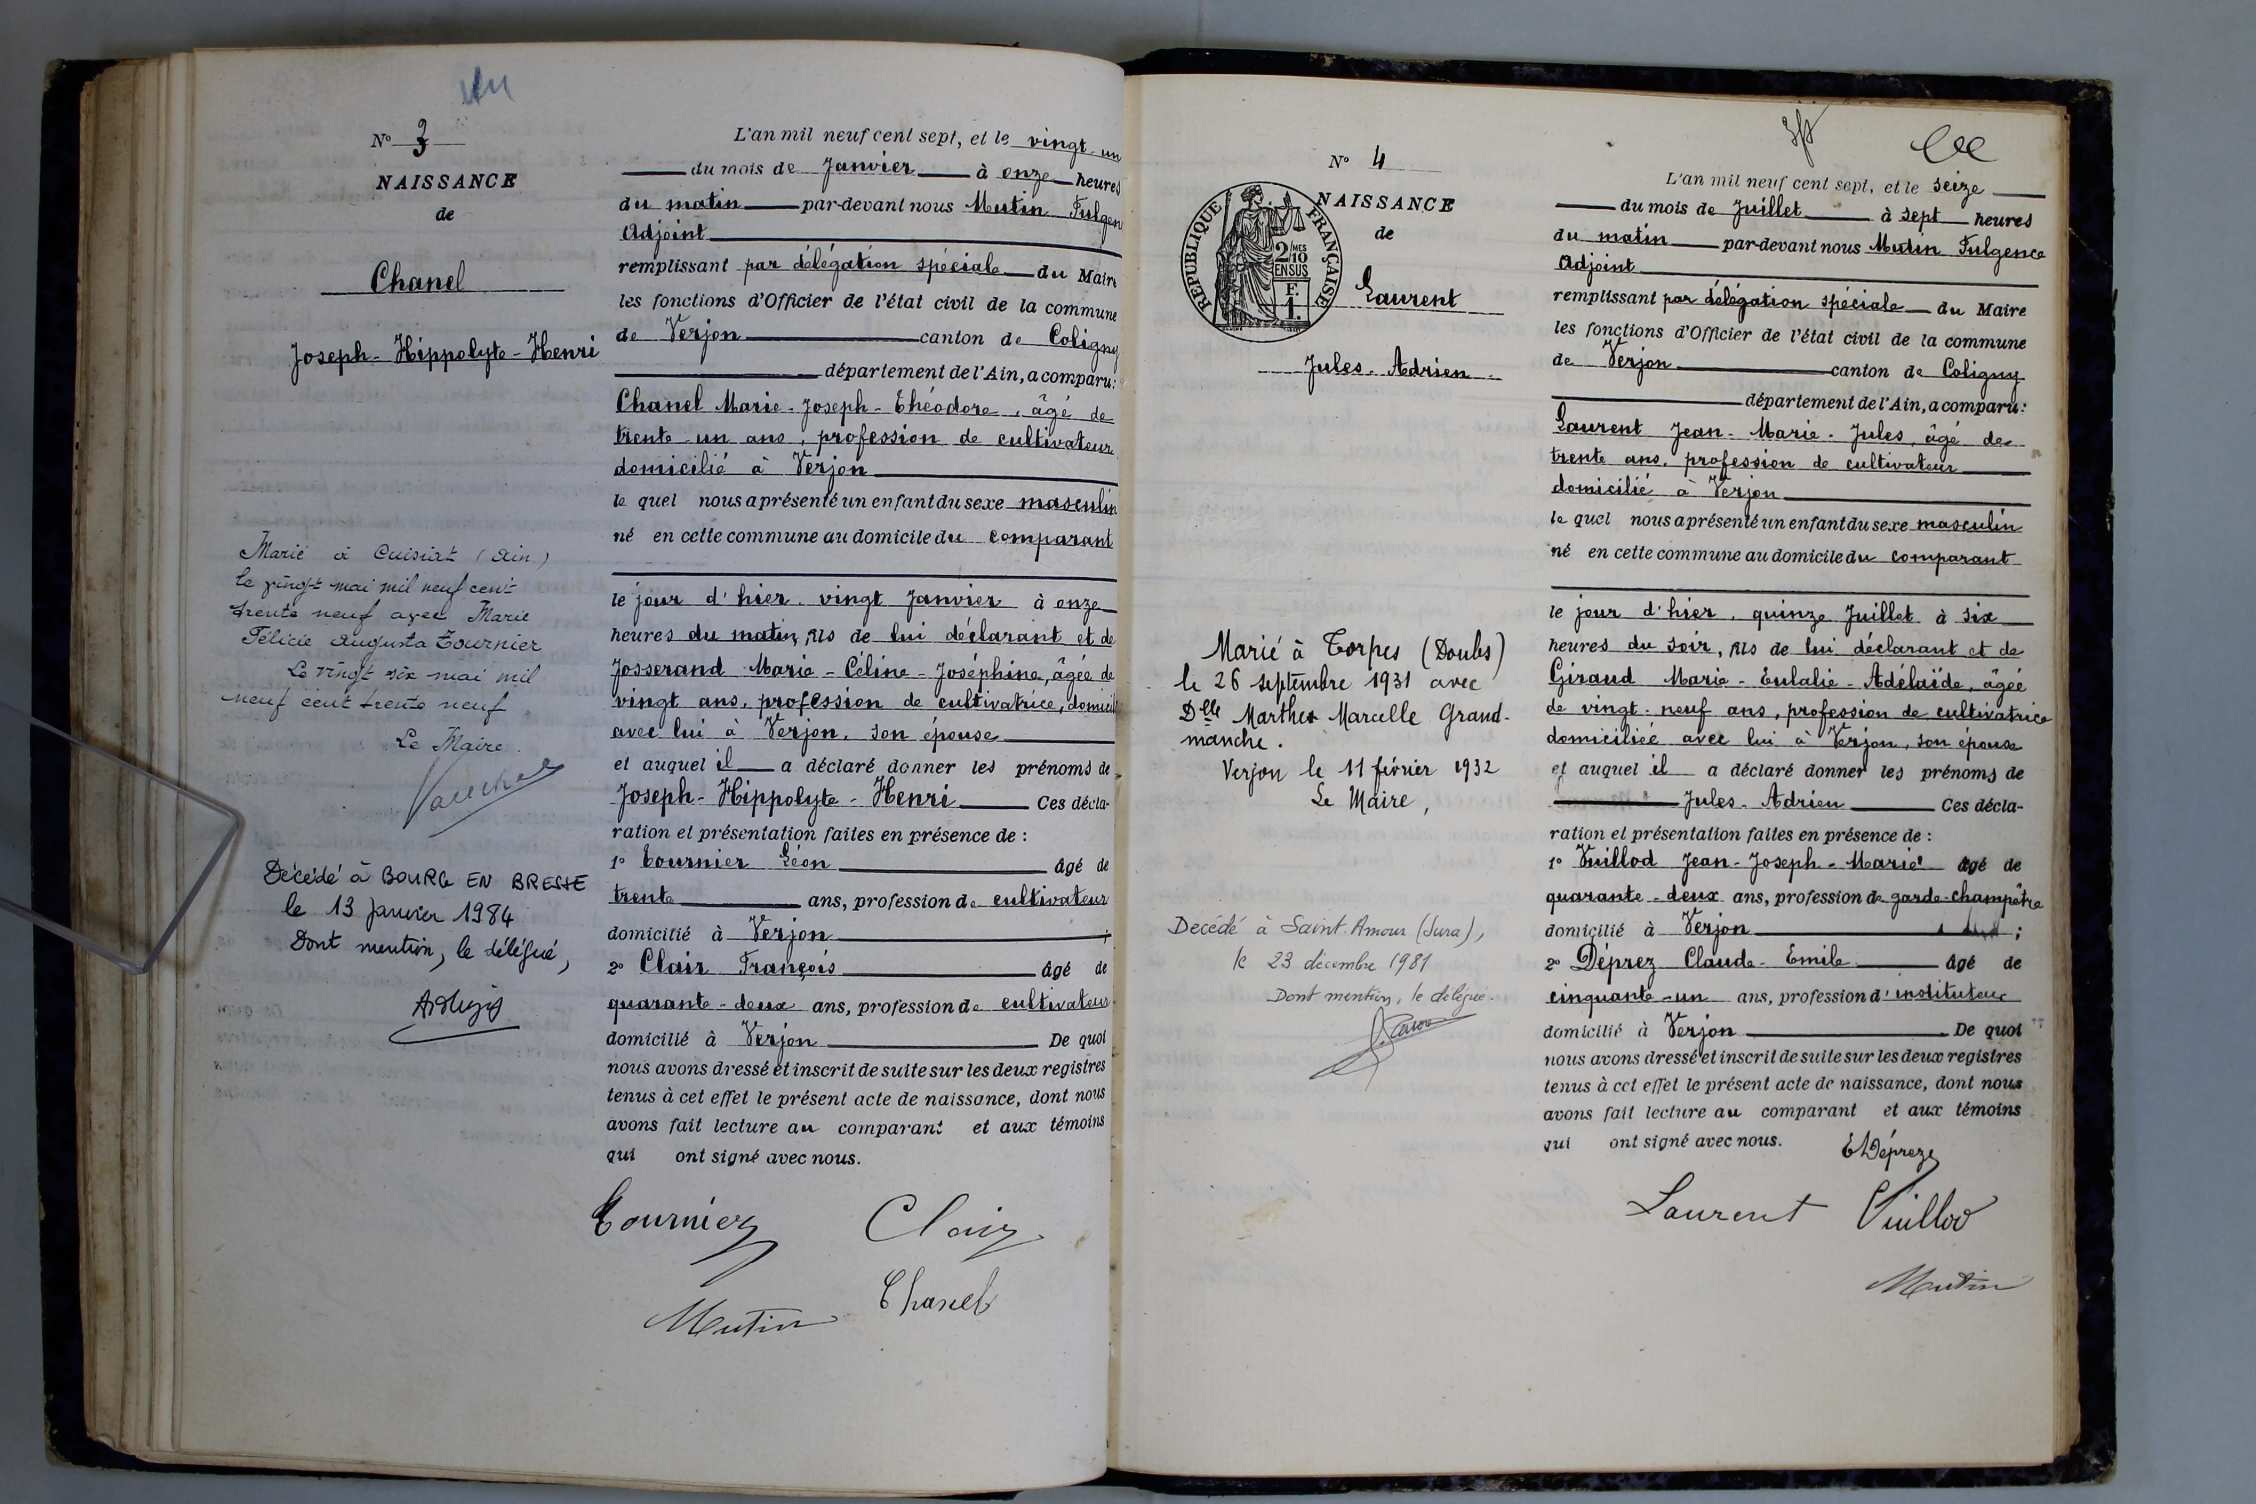 N° 3
NAISSANCE
de
Chanel
Joseph-Hippolyte-Henri
Marié à Cuisiat (Ain)
le vingt mai mil neuf cent
trente neuf avec Marie
Félicie Augusta Tournier
Le vingt six mai mil
neuf cent trente neuf
Le Maire.
Décédé à BOURG EN BRESSE
le 13 janvier 1984
Dont mention, le délégué,
L'an mil neuf cent sept, et le vingt-un
du mois de Janvier à onze heures
du matin par-devant nous Mutin Fulgen
Adjoint
remplissant par délégation spéciale du Maire
les fonctions d'Officier de l'état civil de la commune
de Verjon canton de Coligny
département de l'Ain, a comparu:
Chanel Marie-Joseph-Théodore, âgé de
trente-un ans, profession de cultivateur
domicilié à Verjon
le quel nous a présenté un enfant du sexe masculin
né en cette commune au domicile du comparant
le jour d'hier. vingt Janvier à onze
heures du matin, fils de lui déclarant et de
Josserand Marie-Céline-Joséphine, âgée de
vingt ans, profession de cultivatrice, domicil
avec lui à Verjon, son épouse
et auquel il a déclaré donner les prénoms de
Joseph-Hippolyte-Henri Ces décla-
ration et présentation faites en présence de :
1° Tournier Léon âgé de
trente ans, profession de cultivateur
domicilié à Verjon ;
2° Clair François âgé de
quarante-deux ans, profession de cultivateur
domicilié à Verjon De quoi
nous avons dressé et inscrit de suite sur les deux registres
tenus à cet effet le présent acte de naissance, dont nous
avons fait lecture au comparant et aux témoins
qui ont signé avec nous.
Tournier Clair
Mutin Chanel
N° 4
NAISSANCE
de
REPUBLIQUE FRANÇAISE
2/MES
10
EN SUS
F.
1.
Laurent
Jules-Adrien
Marié à Torpes (Doubs)
le 26 septembre 1931 avec
Dlle Marthe Marcelle Grand-
manche.
Verjon le 11 février 1932
Le Maire,
Décédé à Saint-Amour (Jura),
le 23 décembre 1981
Dont mention, le délégué.
L'an mil neuf cent sept, et le seize
du mois de Juillet à sept heures
du matin par-devant nous Mutin Fulgence
Adjoint
remplissant par délégation spéciale du Maire
les fonctions d'Officier de l'état civil de la commune
de Verjon canton de Coligny
département de l'Ain, a comparu:
Laurent Jean-Marie-Jules, âgé de
trente ans, profession de cultivateur
domicilié à Verjon
le quel nous a présenté un enfant du sexe masculin
né en cette commune au domicile du comparant
le jour d'hier, quinze Juillet à six
heures du soir, fils de lui déclarant et de
Giraud Marie-Eulalie-Adélaïde, âgée
de vingt-neuf ans, profession de cultivatrice
domiciliée avec lui à Verjon, son épouse
et auquel il a déclaré donner les prénoms de
Jules-Adrien Ces décla-
ration et présentation faites en présence de :
1° Vuillod Jean-Joseph-Marie âgé de
quarante-deux ans, profession de garde-champêtre
domicilié à Verjon ;
2° Déprez Claude-Emile âgé de
cinquante-un ans, profession d'instituteur
domicilié à Verjon De quoi
nous avons dressé et inscrit de suite sur les deux registres
tenus à cet effet le présent acte de naissance, dont nous
avons fait lecture au comparant et aux témoins
qui ont signé avec nous.
Déprez
Laurent Vuillod
Mutin